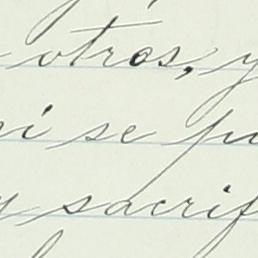 otros, y
ni se pu
y sacrif